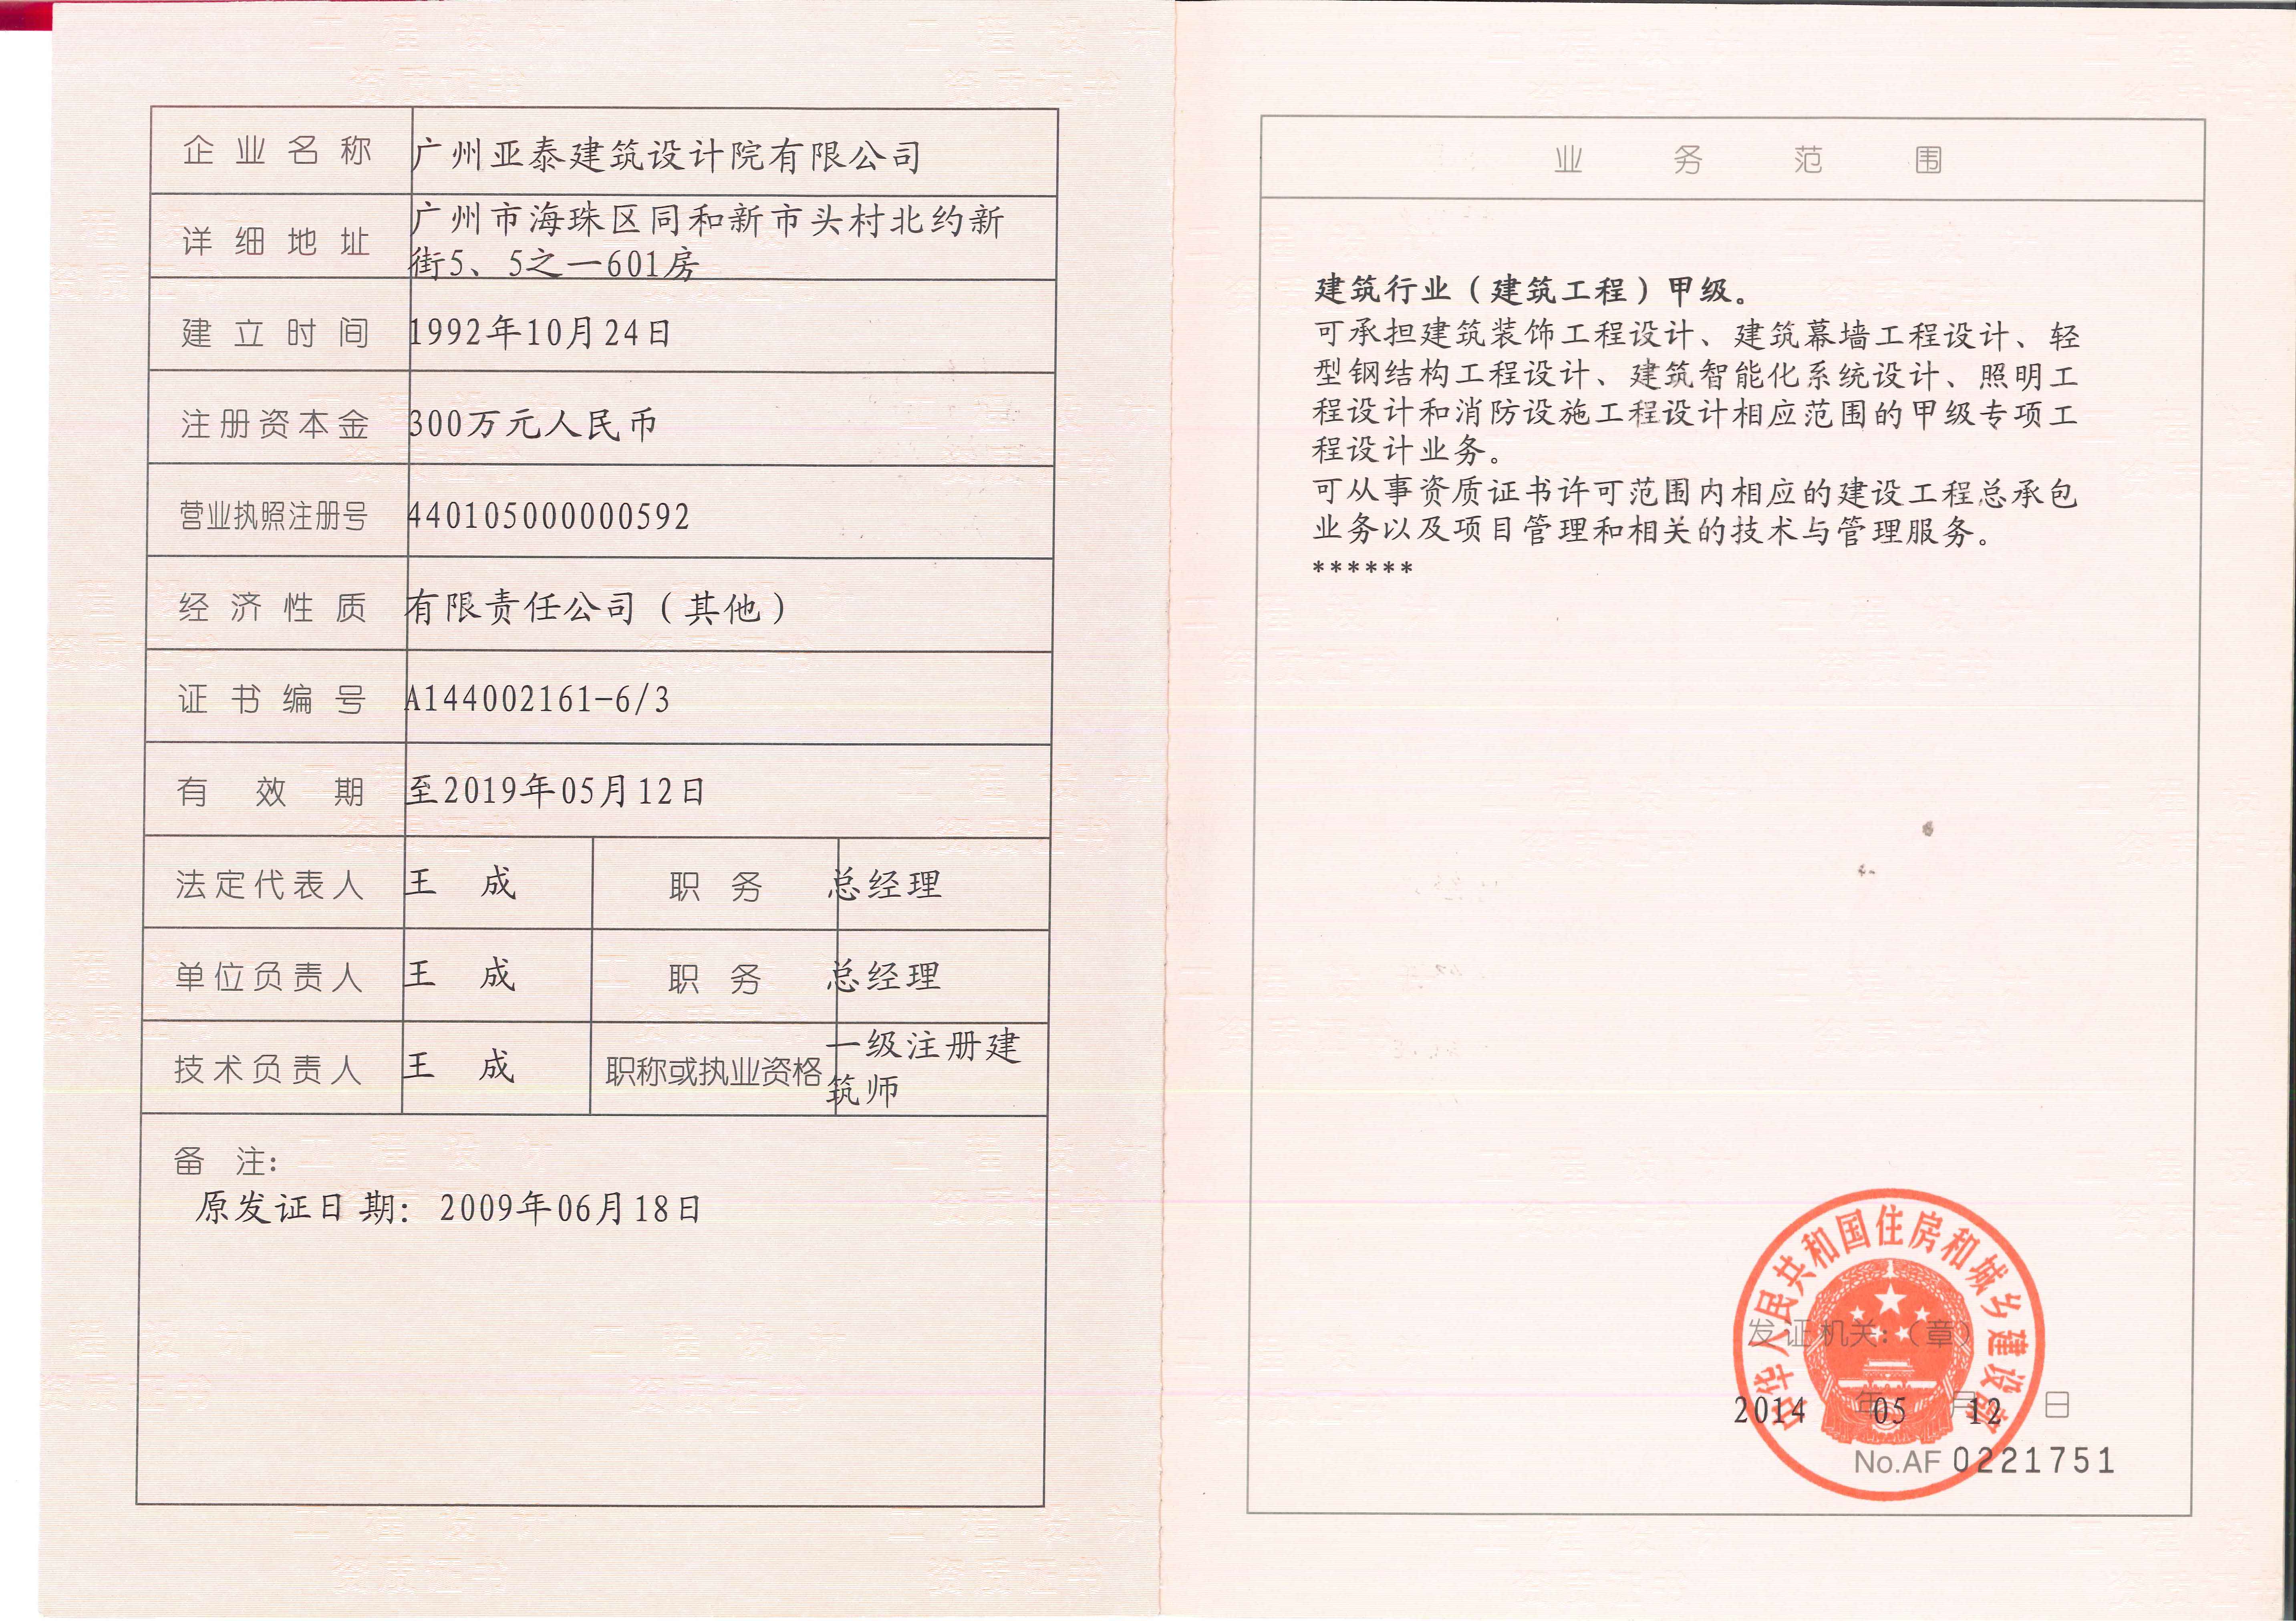 企业名称 广州亚泰建筑设计院有限公司
详细地址 广州市海珠区同和新市头村北约新
街5、5之一601房
建立时间 1992年10月24日
注册资本金 300万元人民币
营业执照注册号 440105000000592
经济性质 有限责任公司（其他）
证书编号 A144002161-6/3
有效期 至2019年05月12日
法定代表人 王 成 职务 总经理
单位负责人 王 成 职务 总经理
技术负责人 王 成 职称或执业资格 一级注册建
筑师
备 注：
原发证日期： 2009年06月18日
业务范围
建筑行业（建筑工程）甲级。
可承担建筑装饰工程设计、建筑幕墙工程设计、轻
型钢结构工程设计、建筑智能化系统设计、照明工
程设计和消防设施工程设计相应范围的甲级专项工
程设计业务。
可从事资质证书许可范围内相应的建设工程总承包
业务以及项目管理和相关的技术与管理服务。
******
中华人民共和国住房和城乡建设部
发证机关：（章）
2014 年 05 月 12 日
No.AF 0221751
工程设计
资质证书